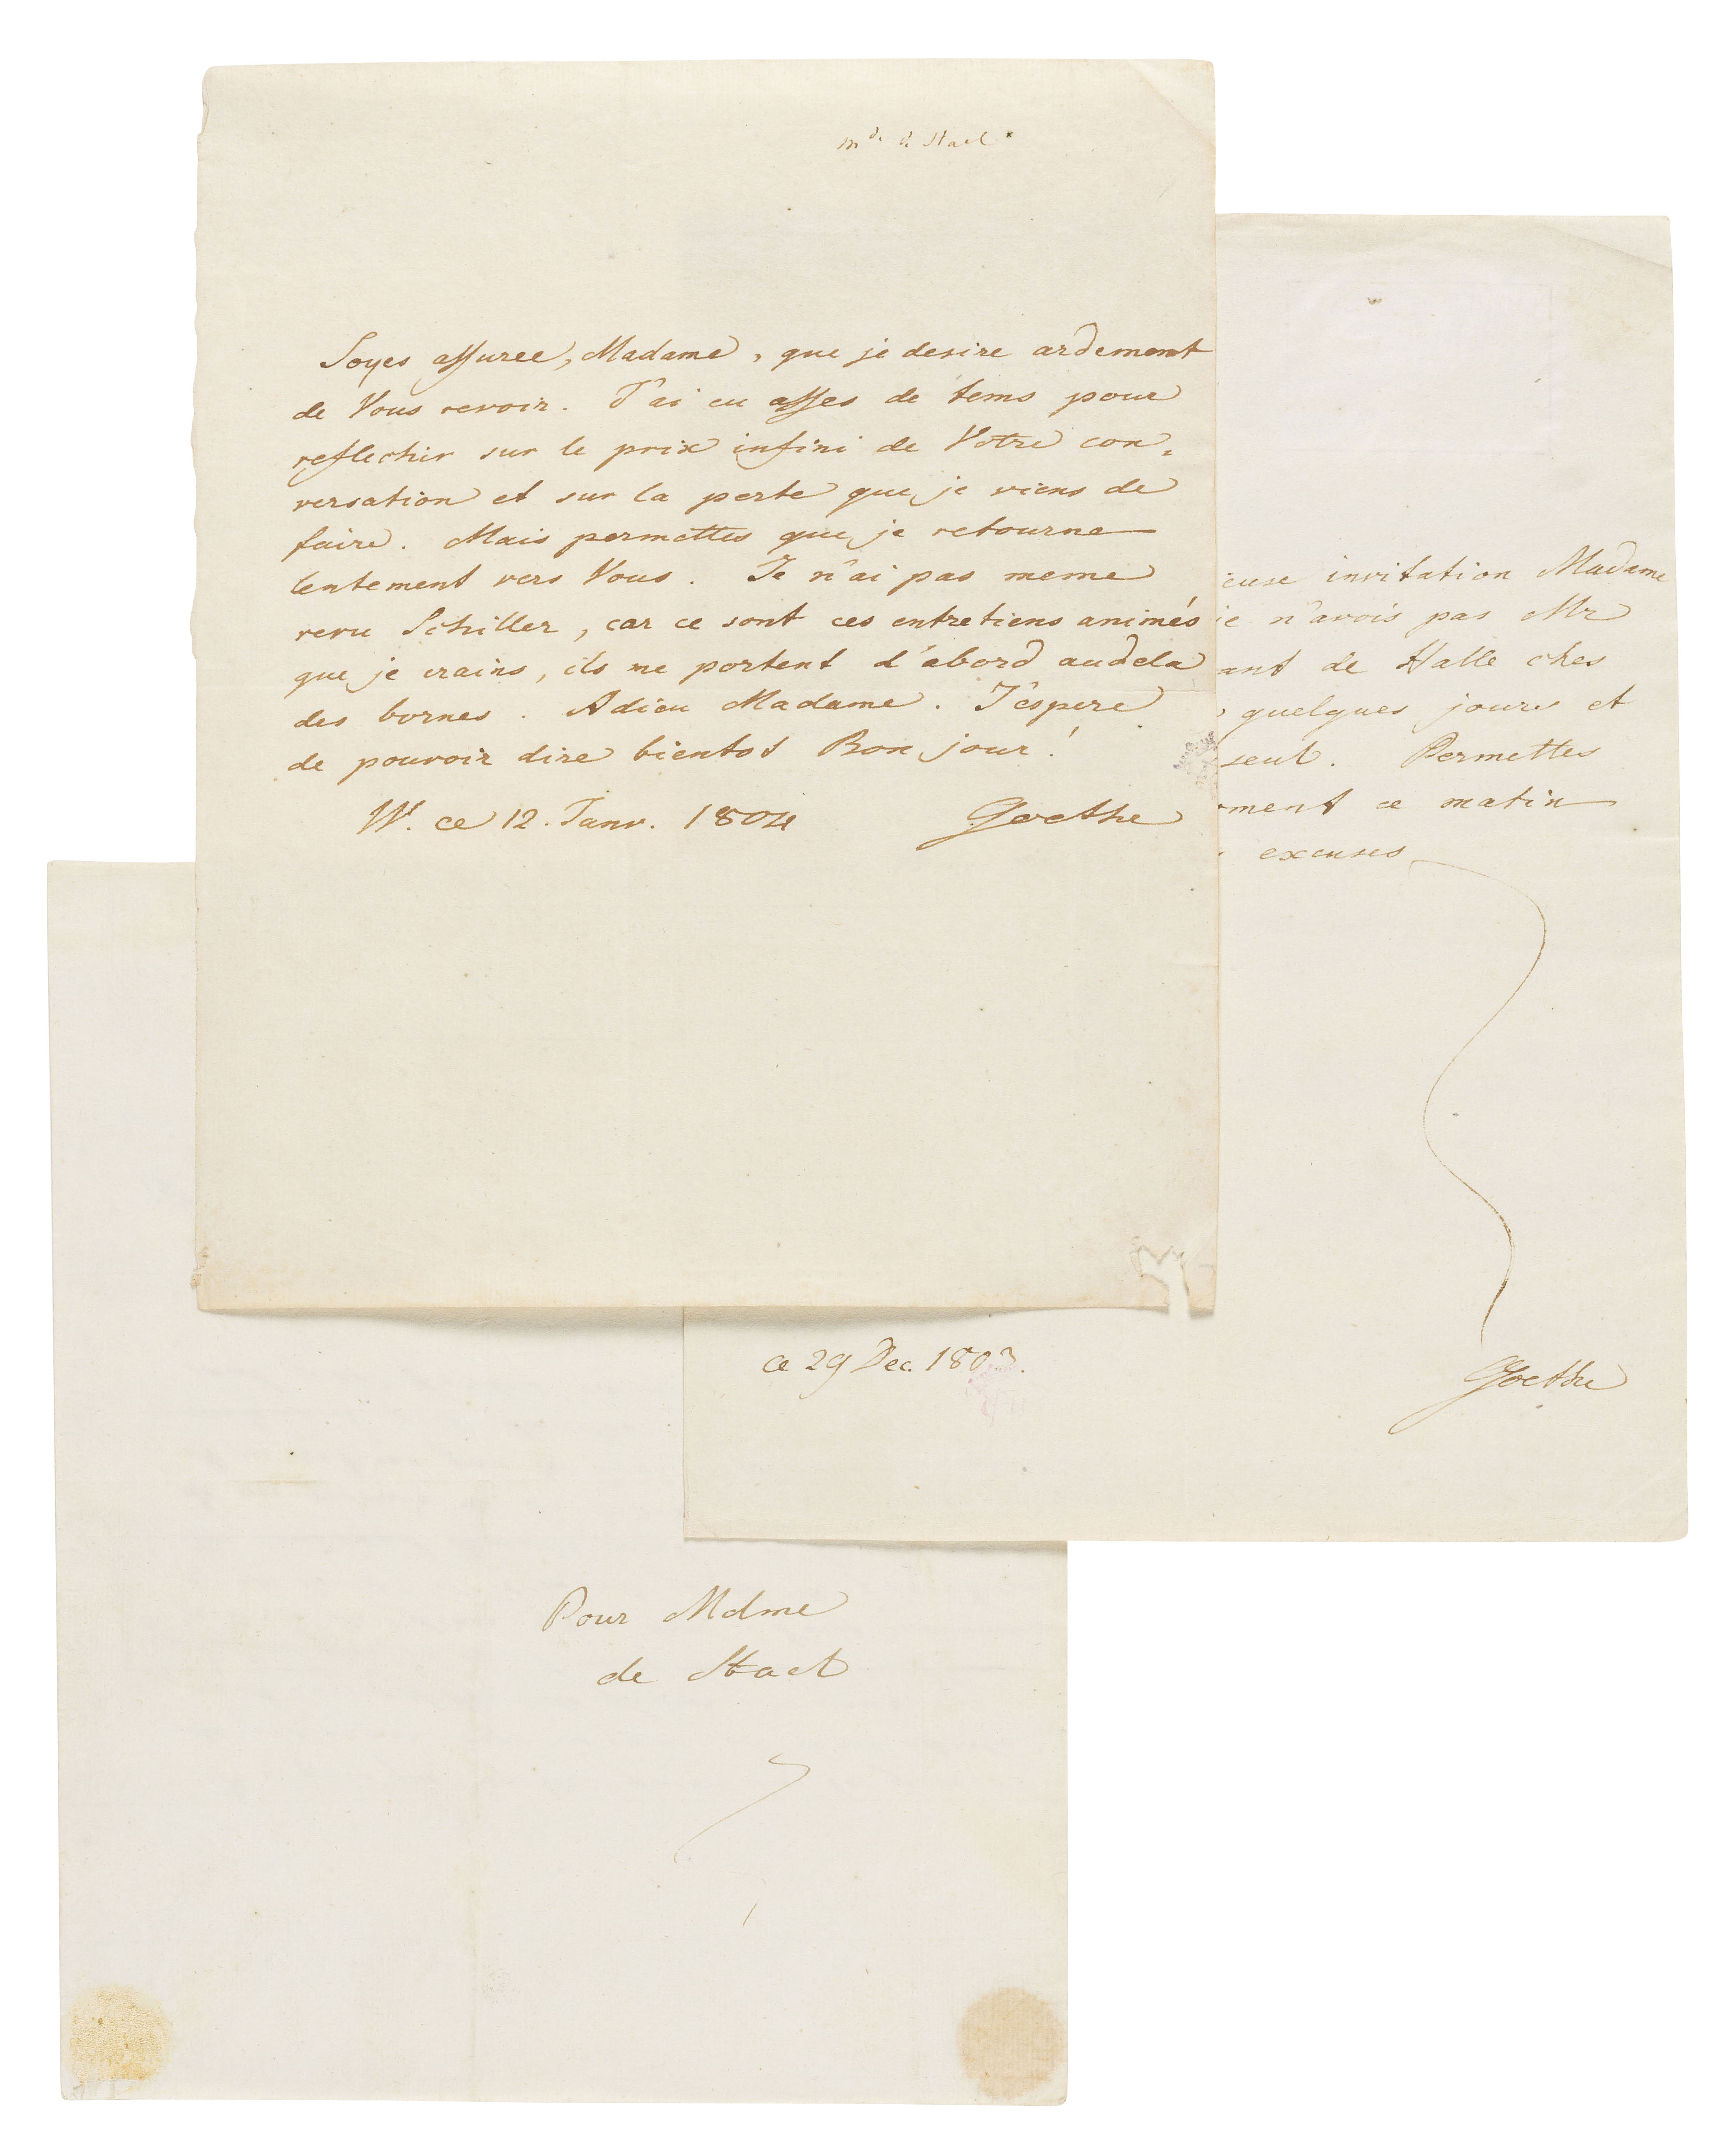 Mde de Stael
Soyes assuree, Madame, que je desire ardement
de Vous revoir. J'ai eu asses de tems pour
reflechir sur le prix infini de Votre con-
versation et sur la perte que je viens de
faire. Mais permettes que je retourne
lentement vers Vous. Je n'ai pas meme
revu Schiller, car ce sont ces entretiens animés
que je crains, ils me portent d'abord audela
des bornes. Adieu Madame. J'espere
de pouvoir dire bientot Bon jour!
W. ce 12. Janv. 1804 Goethe
ieuse invitation Madame
je n'avois pas Mr
ant de Halle ches
quelques jours et
seul. Permettes
ment ce matin
excuses
ce 29 Dec. 1803.
Goethe
Pour Mdme
de Stael